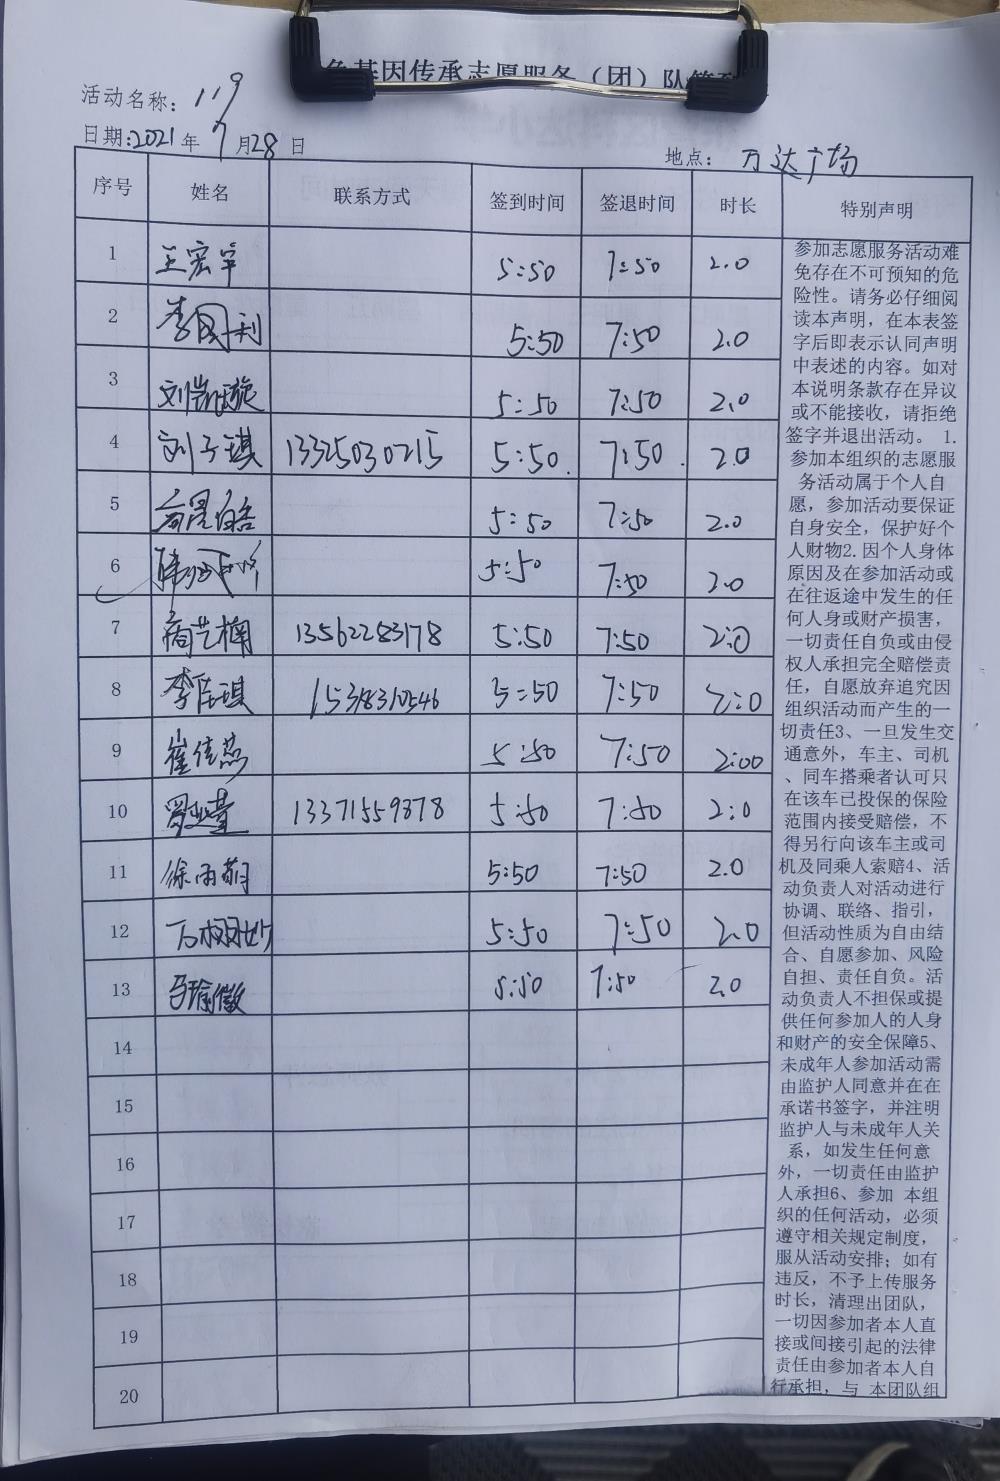 色基因传承志愿服务（团）队签到
活动名称：119
日期:2021年7月28日
地点：万达广场
序号 姓名 联系方式 签到时间 签退时间 时长 特别声明
1 王宏宇 5:50 7:50 2.0
2 李国利 5:50 7:50 2.0
3 刘凯璇 5:50 7:50 2.0
4 刘子琪 13325030215 5:50. 7:50. 2.0
5 5:50 7:50 2.0
6 5:50 7:50 2.0
7 艺楠 13562283178 5:50 7:50 2:0
8 李佳琪 15318310546 5:50 7:50 2:0
9 崔佳燕 5:50 7:50 2:00
10 13371559378 5:50 7:50 2:0
11 徐雨萌 5:50 7:50 2.0
12 5:50 7:50 2.0
13 5:50 7:50 2.0
14
15
16
17
18
19
20
参加志愿服务活动难
免存在不可预知的危
险性。请务必仔细阅
读本声明，在本表签
字后即表示认同声明
中表述的内容。如对
本说明条款存在异议
或不能接收，请拒绝
签字并退出活动。 1.
参加本组织的志愿服
务活动属于个人自
愿，参加活动要保证
自身安全，保护好个
人财物2.因个人身体
原因及在参加活动或
在往返途中发生的任
何人身或财产损害，
一切责任自负或由侵
权人承担完全赔偿责
任，自愿放弃追究因
组织活动而产生的一
切责任3、一旦发生交
通意外，车主、司机
、同车搭乘者认可只
在该车已投保的保险
范围内接受赔偿，不
得另行向该车主或司
机及同乘人索赔4、活
动负责人对活动进行
协调、联络、指引，
但活动性质为自由结
合、自愿参加、风险
自担、责任自负。活
动负责人不担保或提
供任何参加人的人身
和财产的安全保障5、
未成年人参加活动需
由监护人同意并在在
承诺书签字，并注明
监护人与未成年人关
系，如发生任何意
外，一切责任由监护
人承担6、参加 本组
织的任何活动，必须
遵守相关规定制度，
服从活动安排；如有
违反，不予上传服务
时长，清理出团队，
一切因参加者本人直
接或间接引起的法律
责任由参加者本人自
行承担，与 本团队组